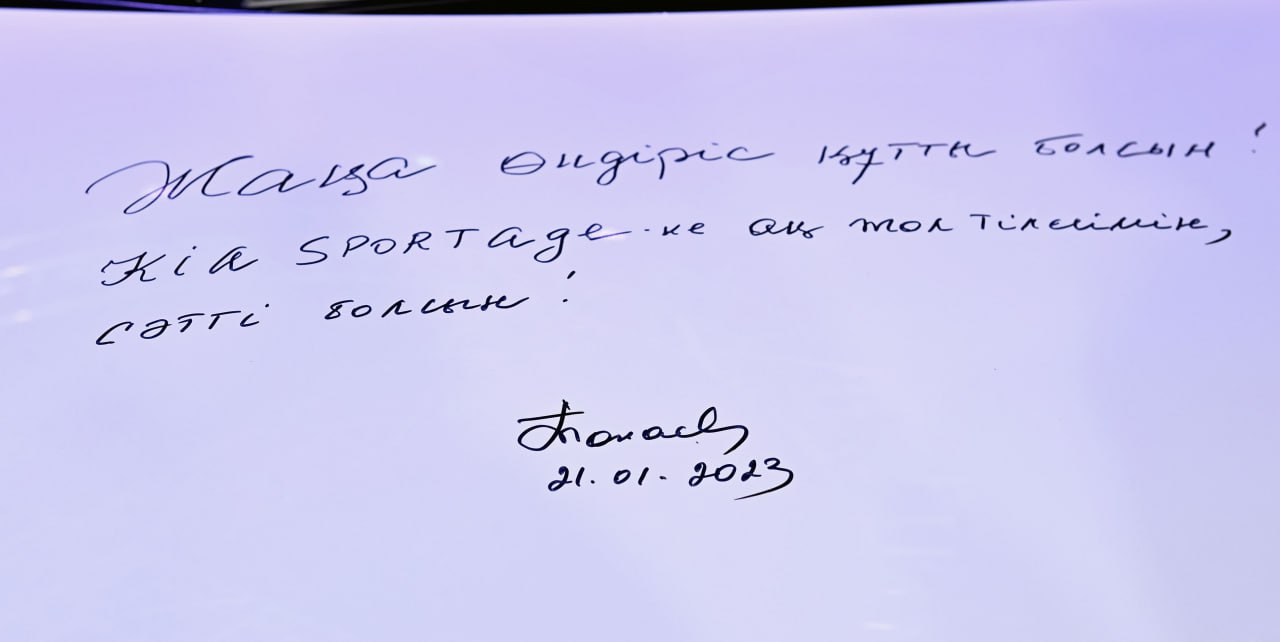 Жаңа өндіріс құтты болсын!
Кіа SPORTAGE-ке ақ жол тілеймін,
сәтті болсын!
21.01.2023